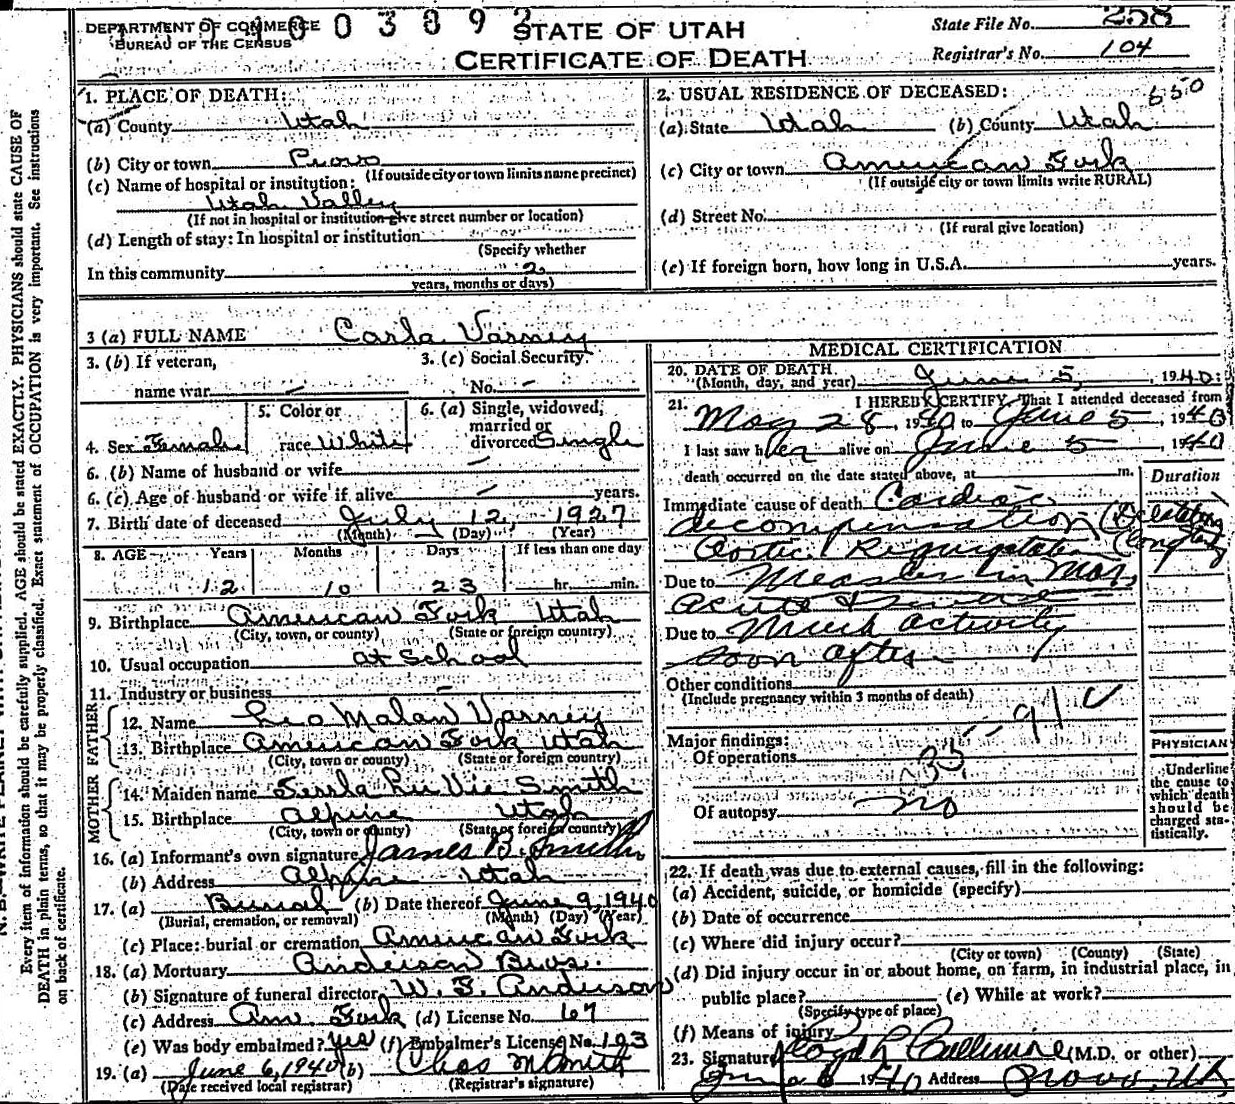 DEPARTMENT OF COMMERCE
BUREAU OF THE CENSUS
003892
STATE OF UTAH
CERTIFICATE OF DEATH
State File No. 258
Registrar's No. 104
1. PLACE OF DEATH:
(a) County Utah
(b) City or town Provo
(If outside city or town limits name precinct)
(c) Name of hospital or institution:
Utah Valley
(If not in hospital or institution give street number or location)
(d) Length of stay: In hospital or institution
(Specify whether
In this community 2
years, months or days)
2. USUAL RESIDENCE OF DECEASED: 550
(a) State Utah (b) County Utah
(c) City or town American Fork
(If outside city or town limits write RURAL)
(d) Street No.
(If rural give location)
(e) If foreign born, how long in U.S.A. years.
3 (a) FULL NAME Carla Varney
3. (b) If veteran,
name war -
3. (c) Social Security
No. -
4. Sex Female
5. Color or
race White
6. (a) Single, widowed,
married or
divorced Single
6. (b) Name of husband or wife -
6. (c) Age of husband or wife if alive - years.
7. Birth date of deceased July 12, 1927
(Month) (Day) (Year)
8. AGE Years Months Days If less than one day
12 10 23 hr. min.
9. Birthplace American Fork Utah
(City, town, or county) (State or foreign country)
10. Usual occupation at School
11. Industry or business -
FATHER
12. Name Leo Malan Varney
13. Birthplace American Fork Utah
(City, town or county) (State or foreign country)
MOTHER
14. Maiden name Lu Vie Smith
15. Birthplace Alpine Utah
(City, town or county) (State or foreign country)
16. (a) Informant's own signature James B. Smith
(b) Address Alpine Utah
17. (a) Burial (b) Date thereof June 9, 1940
(Burial, cremation, or removal) (Month) (Day) (Year)
(c) Place: burial or cremation American Fork
18. (a) Mortuary Anderson Bros.
(b) Signature of funeral director W. F. Anderson
(c) Address Am. Fork (d) License No. 67
(e) Was body embalmed? yes (f) Embalmer's License No. 193
19. (a) June 6, 1940 (b) Chas M Smith
(Date received local registrar) (Registrar's signature)
MEDICAL CERTIFICATION
20. DATE OF DEATH
(Month, day, and year) June 5, 1940.
21. I HEREBY CERTIFY, That I attended deceased from
May 28, 1940 to June 5, 1940
I last saw her alive on June 5 1940
death occurred on the date stated above, at m.
Duration
Immediate cause of death Cardiac
decompensation
Aortic Regurgitation
Due to Measles in Mar,
Acute &
Due to Much activity
soon after
Other conditions
(Include pregnancy within 3 months of death)
Major findings:
Of operations
Of autopsy no
PHYSICIAN
Underline
the cause to
which death
should be
charged sta-
tistically.
22. If death was due to external causes, fill in the following:
(a) Accident, suicide, or homicide (specify)
(b) Date of occurrence
(c) Where did injury occur?
(City or town) (County) (State)
(d) Did injury occur in or about home, on farm, in industrial place, in
public place? (e) While at work?
(Specify type of place)
(f) Means of injury
23. Signature Lloyd L Cullimore (M.D. or other)
June 6 1940 Address Provo, Ut
Every item of information should be carefully supplied. AGE should be stated EXACTLY. PHYSICIANS should state CAUSE OF
DEATH in plain terms, so that it may be properly classified. Exact statement of OCCUPATION is very important. See instructions
on back of certificate.